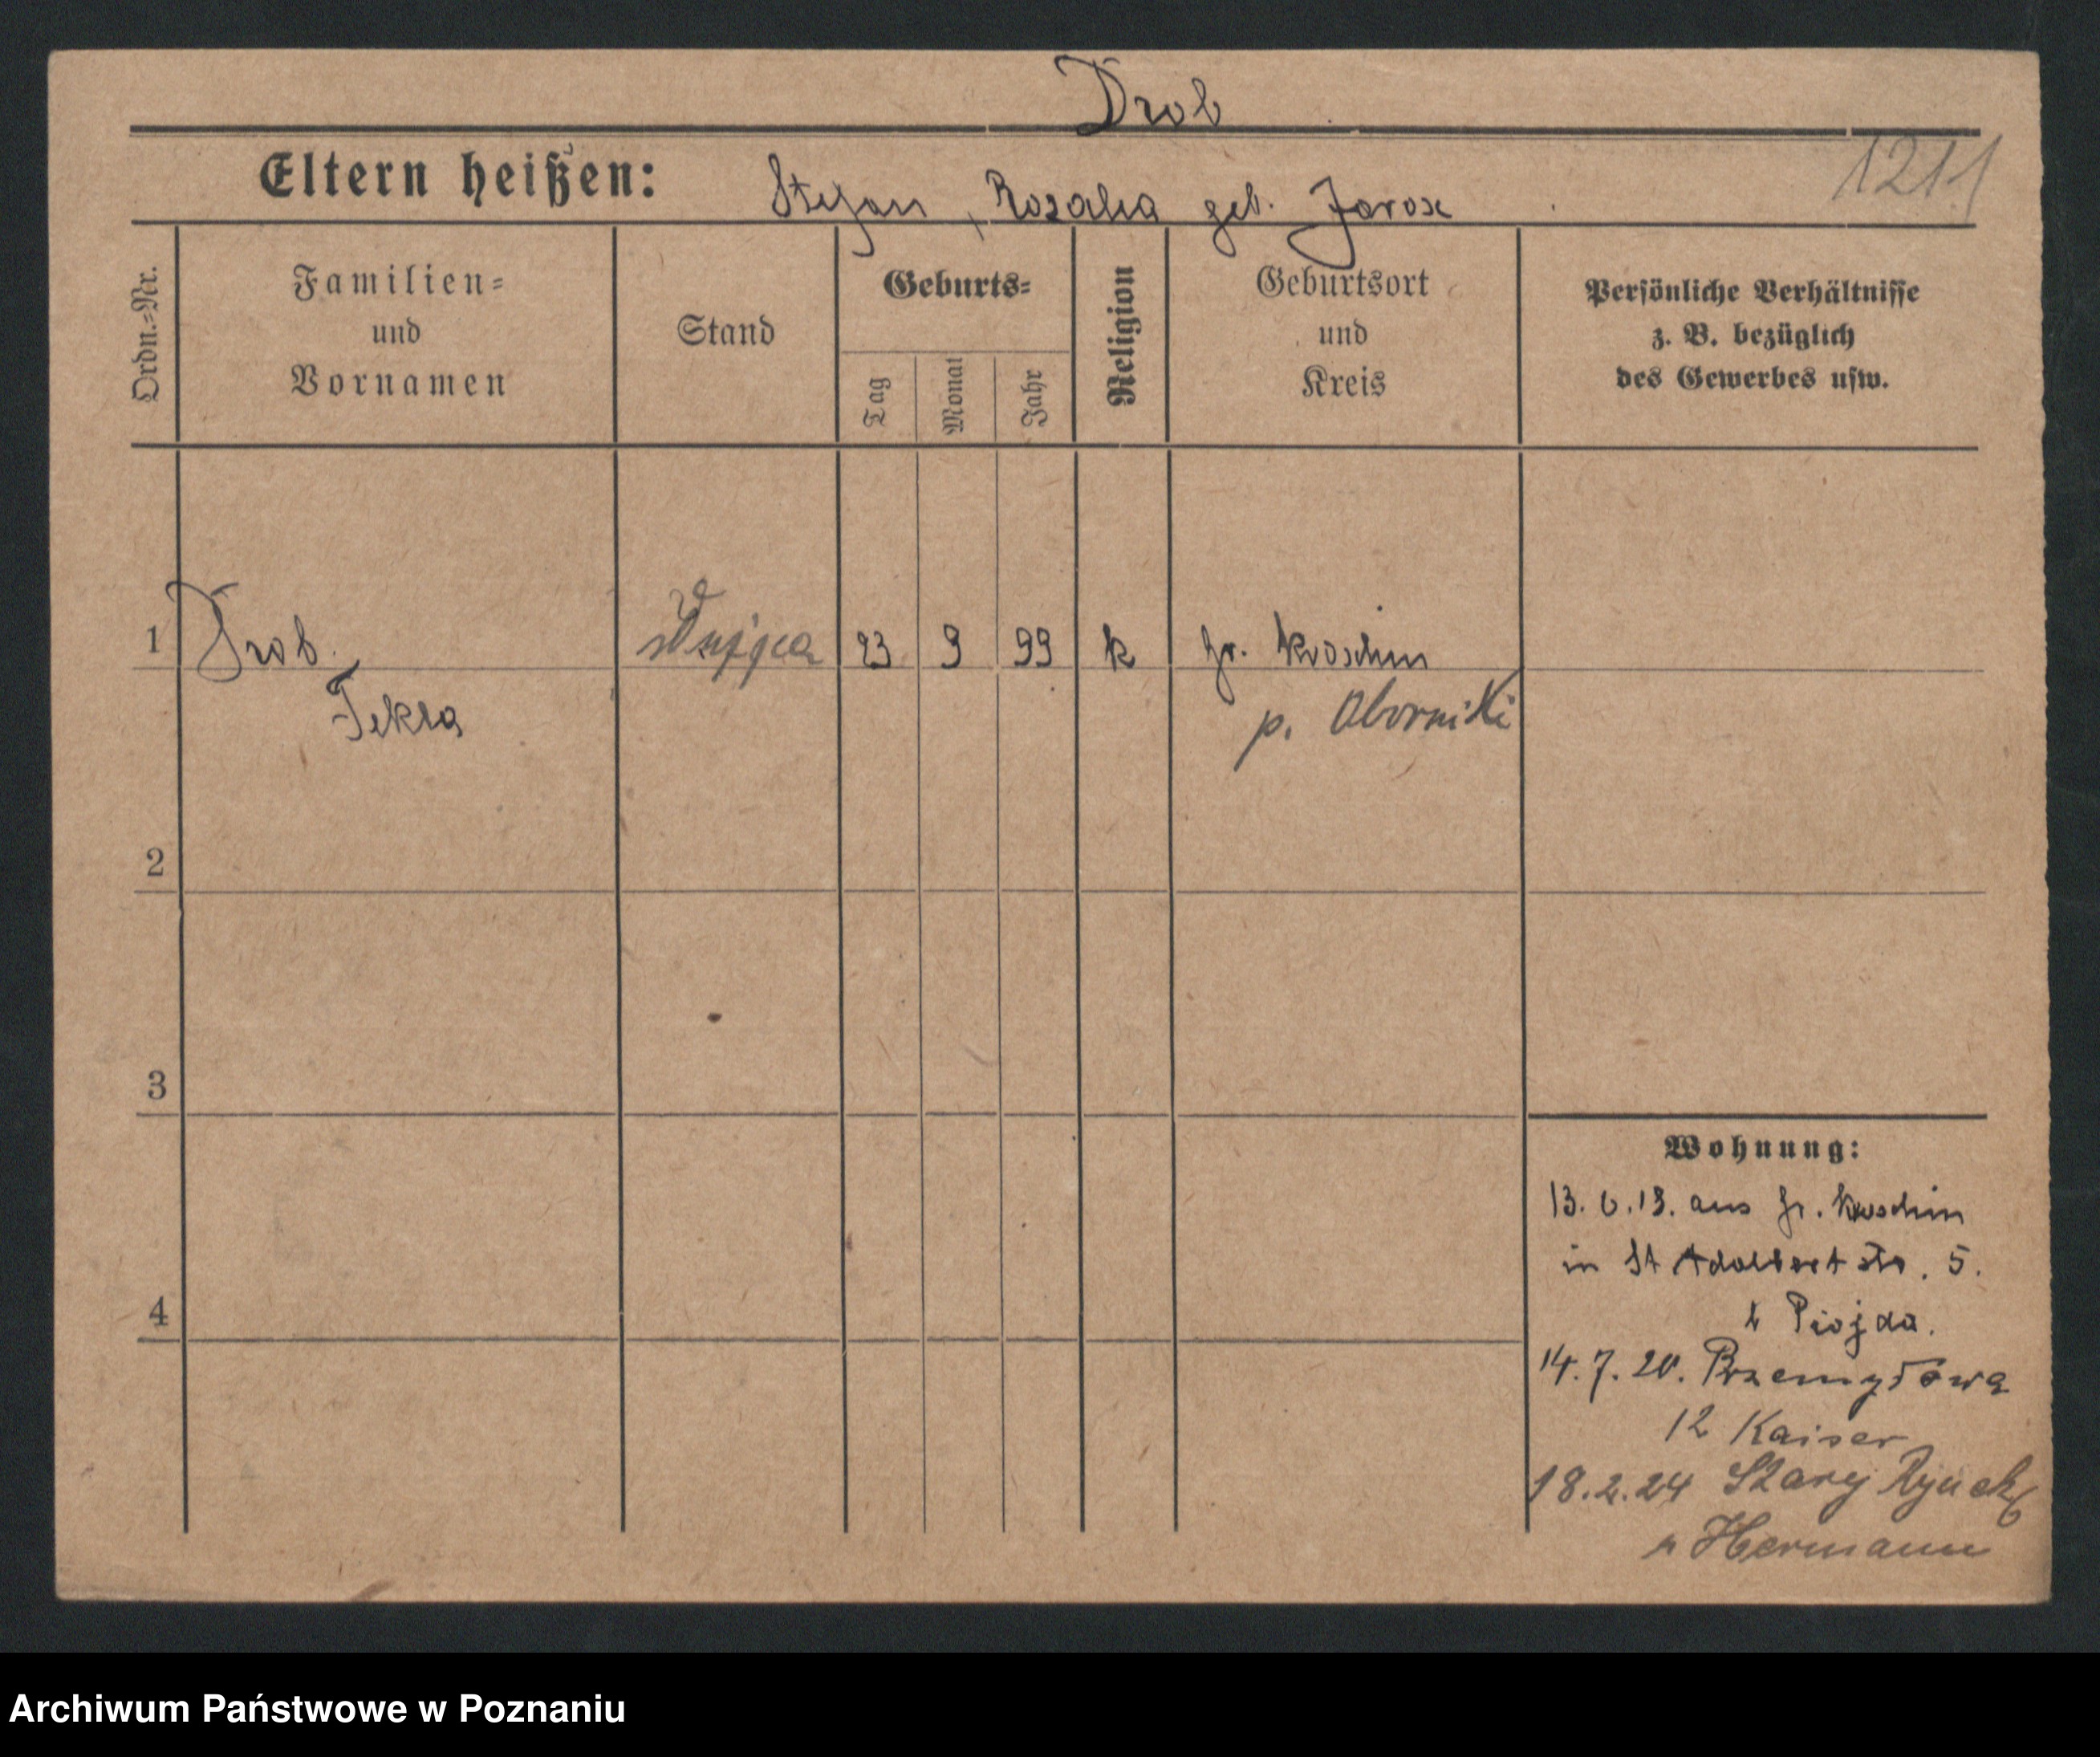 Drob
Eltern heißen: Stefan, Rozalia geb. Jarosz
1211
Ordn.-Nr.
Familien-
und
Vornamen
Stand
Geburts-
Tag
Monat
Jahr
Religion
Geburtsort
und
Kreis
Persönliche Verhältnisse
z. B. bezüglich
des Gewerbes usw.
1 Drob 23 9 99 k Gr. Kroschin
Tekla p. Oborniki
2
3
4
Wohnung:
13. 6. 18. aus Gr. Kroschin
in St Adalbertstr. 5.
14. 7. 20. Przemysłowa
12 Kaiser
18.2.24 Stary Rynek
Hermann
Archiwum Państwowe w Poznaniu